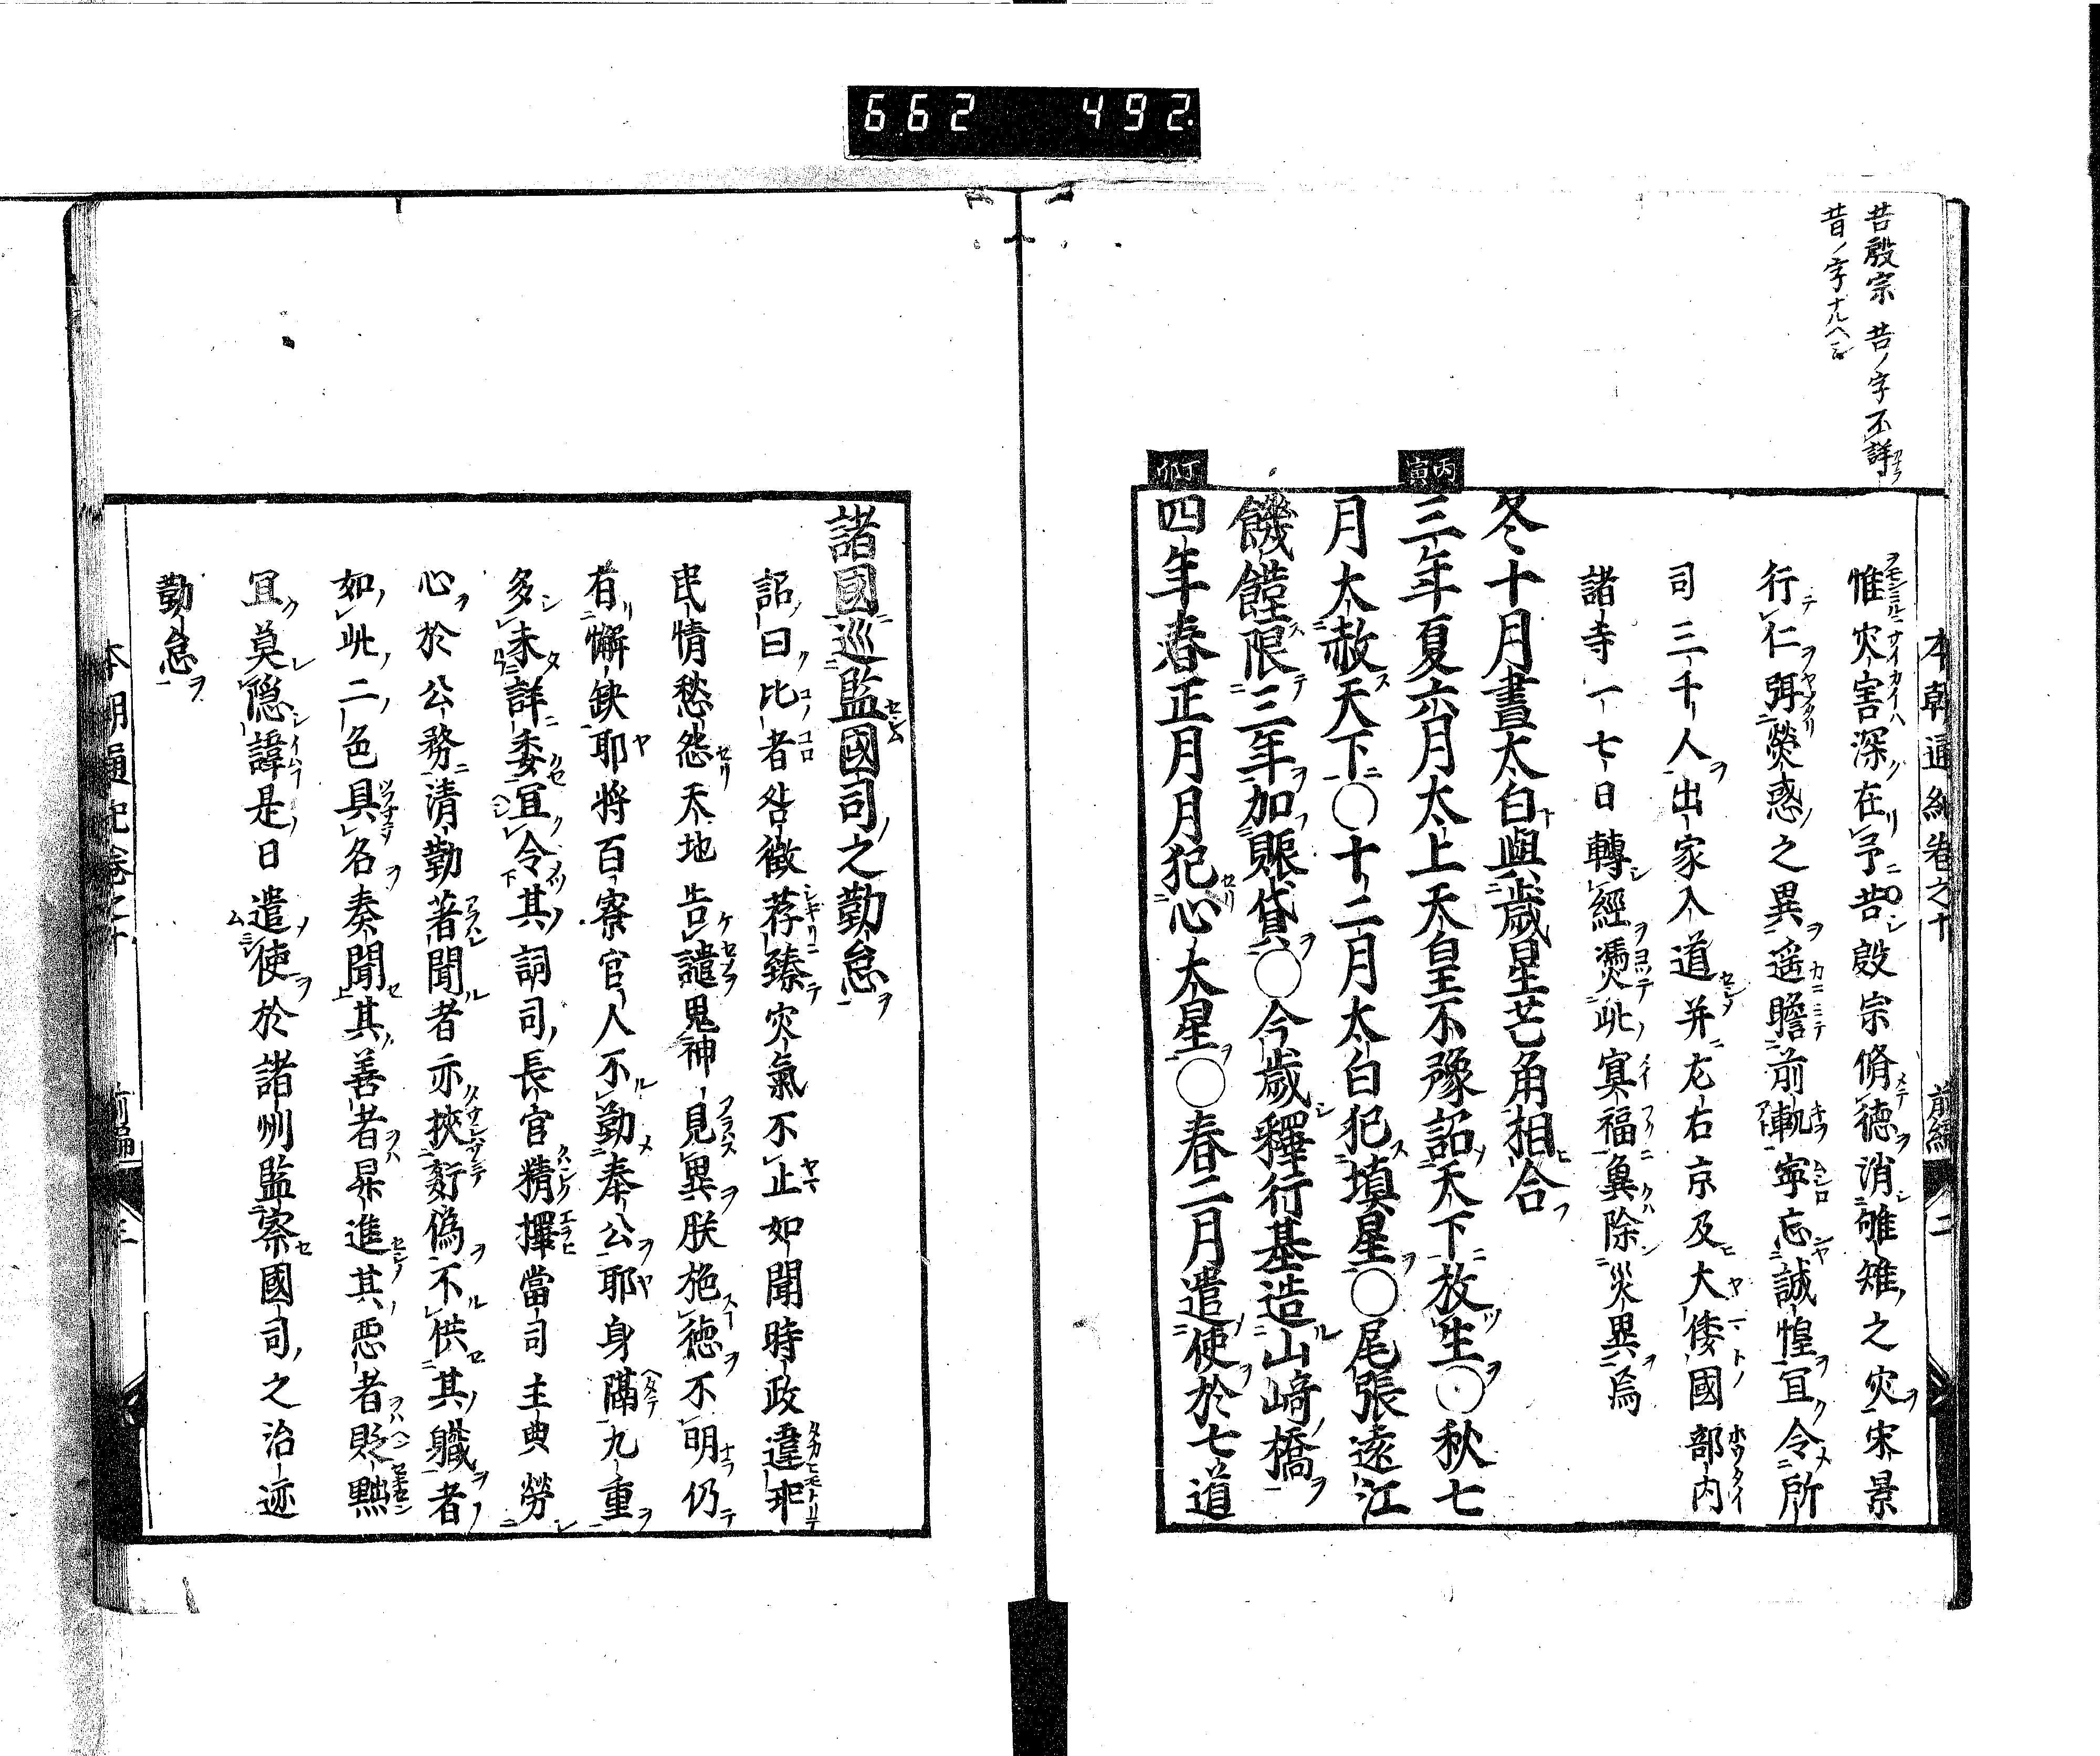 662 492.
昔殷宗 昔ノ字不詳
昔ノ字ナルヘシ
本朝通紀卷之十 前編 二
惟灾害深在予昔殷宗脩德消雊雉之灾宋景
行仁弭熒惑之異遥瞻前軌寧忘誠惶宜令所
司三千人出家入道并左右京及大倭國部内
諸寺一七日轉經憑此冥福冀除災異焉
冬十月晝太白與歲星芒角相合
丙寅
三年夏六月太上天皇不豫詔天下放生〇秋七
月大赦天下〇十二月太白犯填星〇尾張遠江
饑饉限三年加賑貸〇今歲釋行基造山崎橋
丁卯
四年春正月月犯心大星〇春二月遣使於七道
諸國巡監國司之勤怠
詔曰比者咎徵荐臻灾氣不止如聞時政違乖
民情愁怨天地告譴鬼神見異朕施德不明仍
有懈缺耶將百寮官人不勤奉公耶身隔九重
多未詳委宜令其詞司長官精擇當司主典勞
心於公務清勤著聞者亦挾姧偽不供其職者
如此二色具名奏聞其善者昇進其惡者貶黜
宜莫隱諱是日遣使於諸州監察國司之治迹
勤怠
本朝通紀卷之十 前編 三